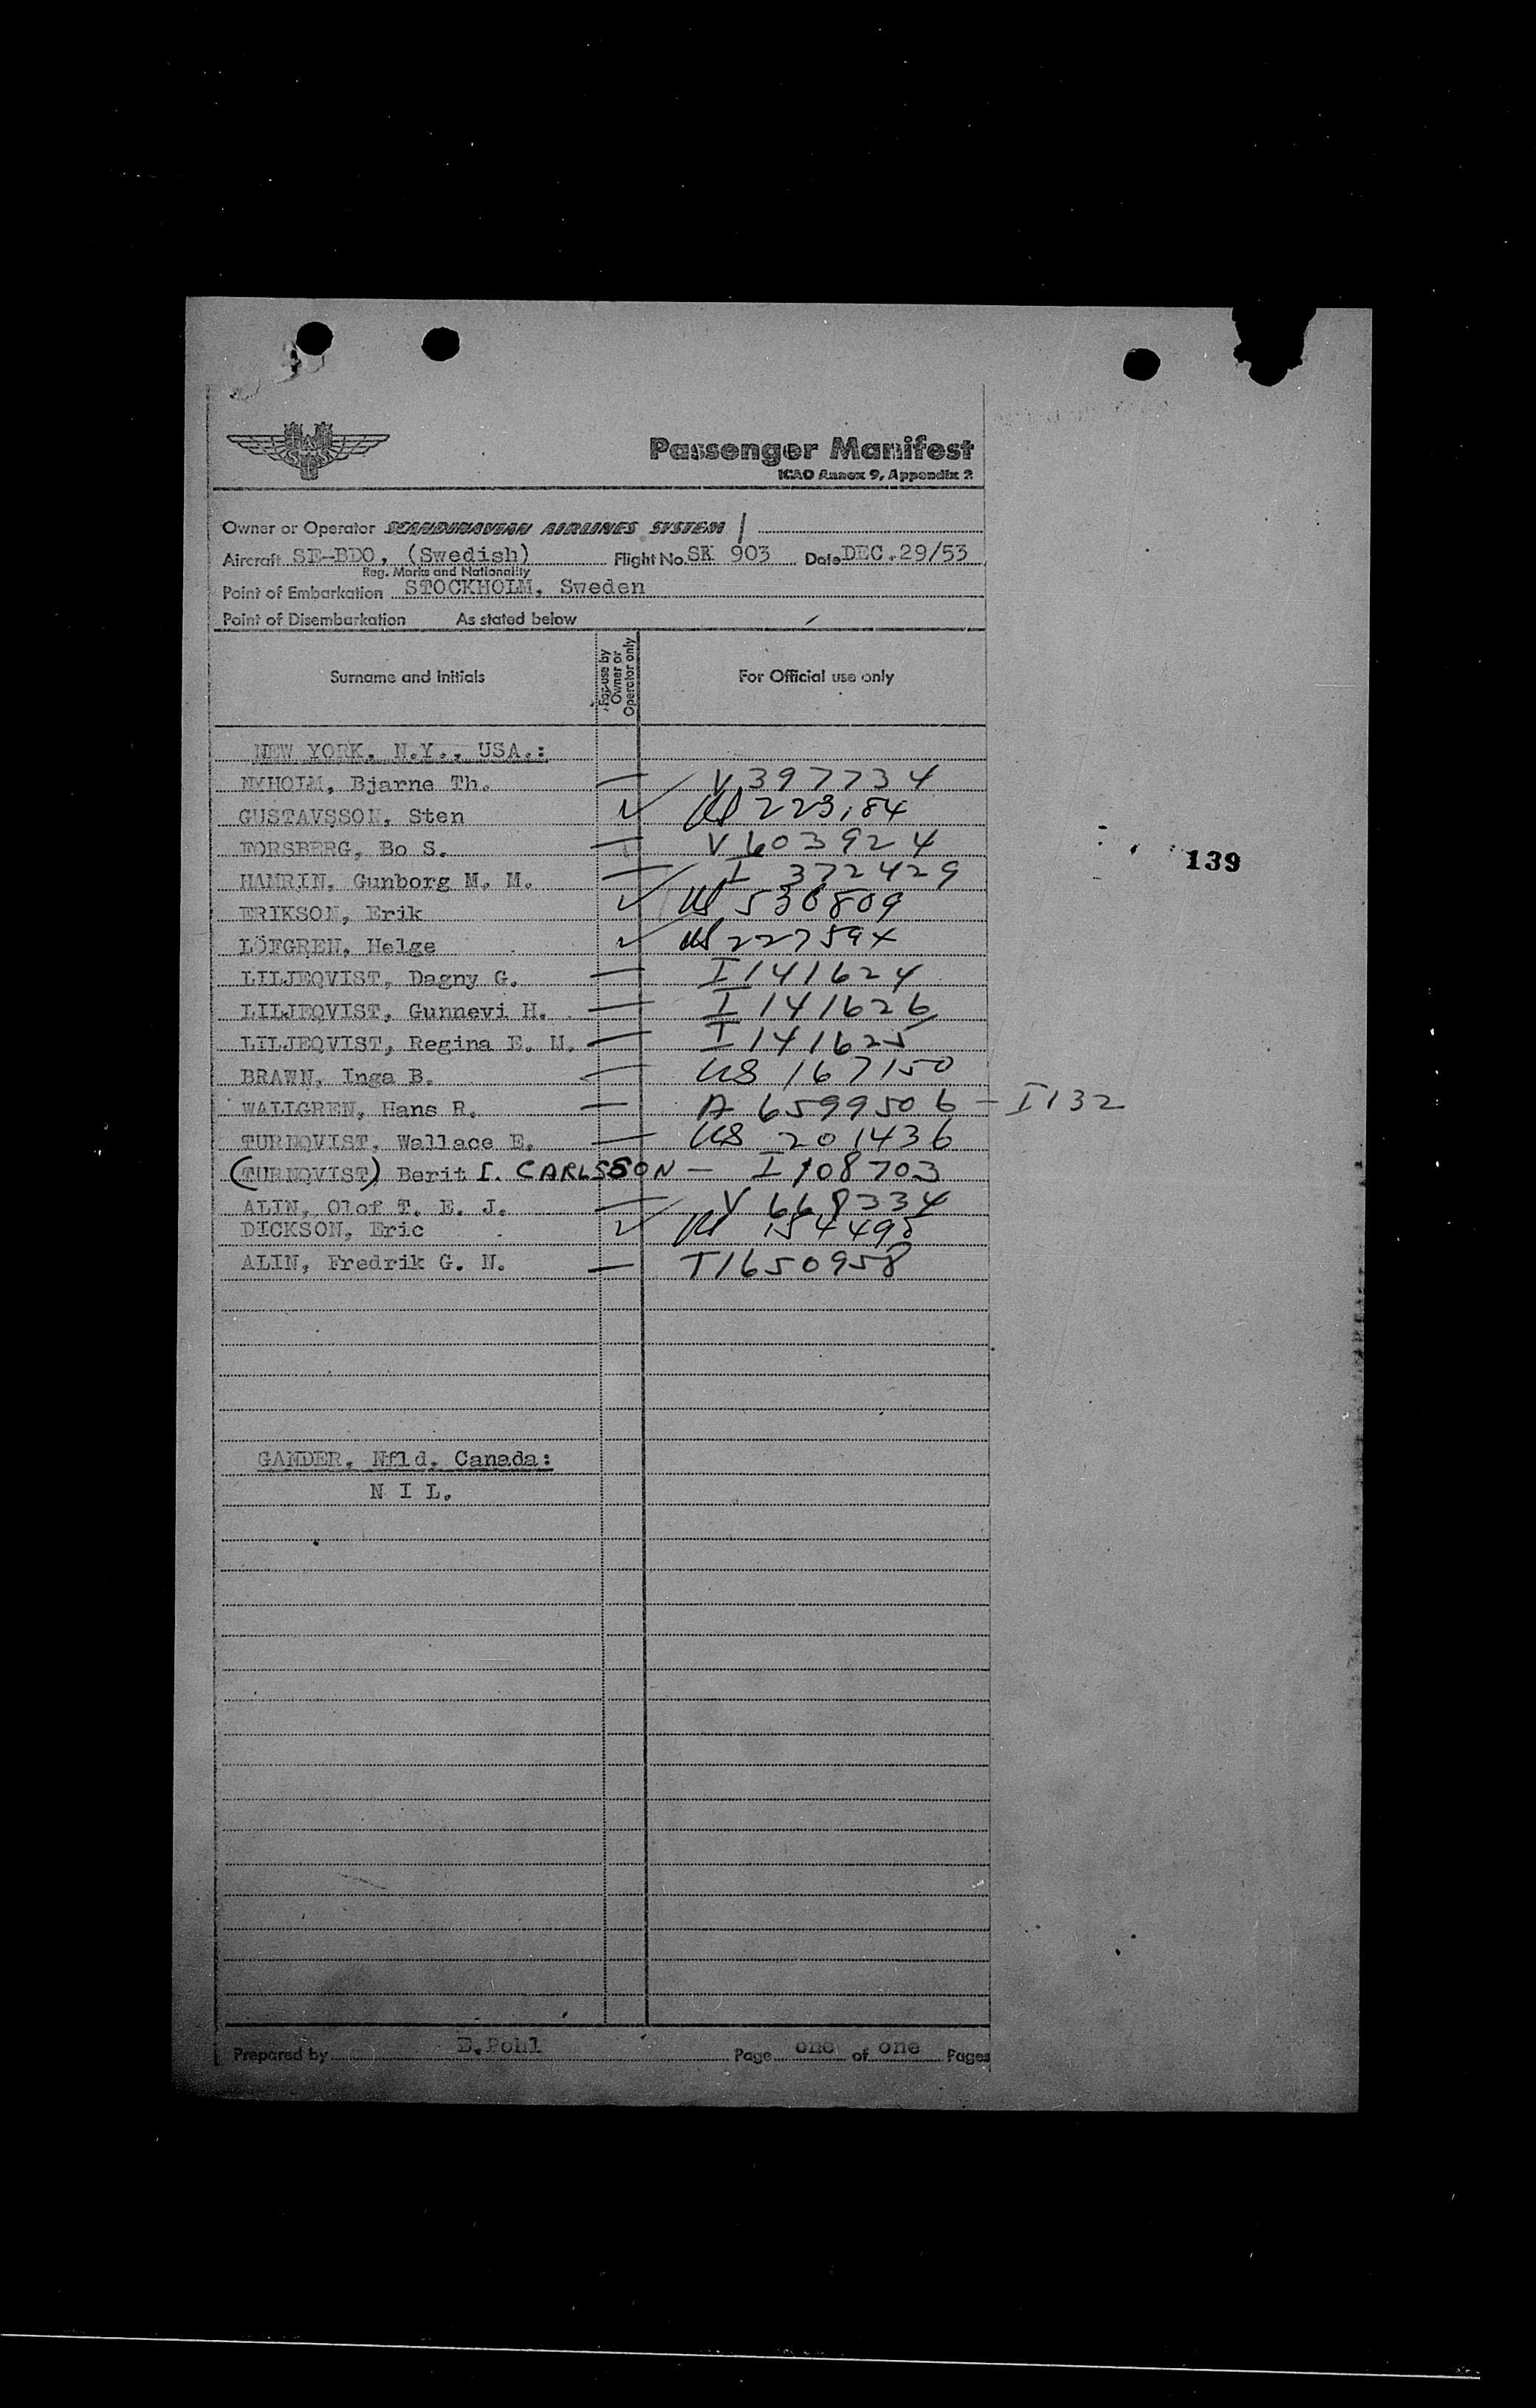 SAS
Passenger Manifest
ICAO Annex 9, Appendix 2
Owner or Operator SCANDINAVIAN AIRLINES SYSTEM
Aircraft SE-BDO, (Swedish) Flight No. SK 903 Date DEC. 29/53
Reg. Marks and Nationality
Point of Embarkation STOCKHOLM, Sweden
Point of Disembarkation As stated below
Surname and Initials For use by Owner or Operator only For Official use only
NEW YORK, N.Y., USA.:
NYHOLM, Bjarne Th. — V 397734
GUSTAVSSON, Sten ✓ US 223184
FORSBERG, Bo S. — V 603924
HAMRIN, Gunborg M. M. — I 372429
ERIKSON, Erik ✓ US 530809
LÖFGREN, Helge ✓ US 227594
LILJEQVIST, Dagny G. — I 141624
LILJEQVIST, Gunnevi H. — I 141626
LILJEQVIST, Regina E. M. — I 141625
BRAWN, Inga B. — US 167150
WALLGREN, Hans R. — A 6599506 — I 132
TURNQVIST, Wallace E. — US 201436
(TURNQVIST) Berit I. CARLSSON — I 108703
ALIN, Olof T. E. J. — V 668334
DICKSON, Eric ✓ US 154498
ALIN, Fredrik G. N. — T1650958
139
GANDER, Nfld, Canada:
N I L.
Prepared by E.Pohl Page one of one Pages